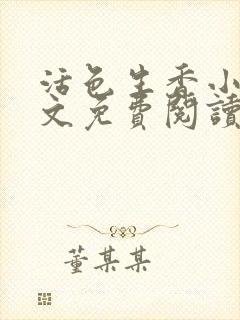 活色生香小
文免費閱讀
董某某